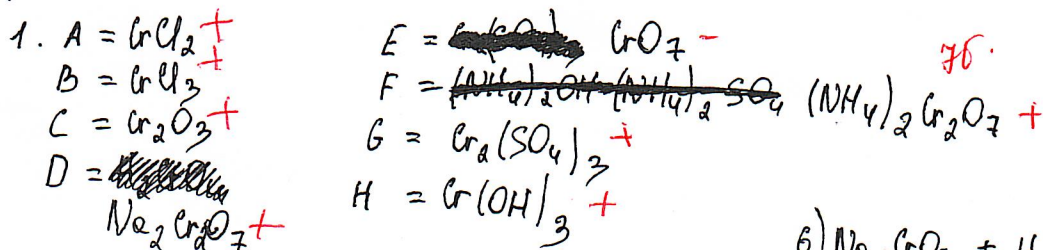 1. A = CrCl2 +
B = CrCl3 +
C = Cr2O3 +
D =
Na2Cr2O7 +
E = CrO7 -
F = (NH4)2OH (NH4)2 SO4 (NH4)2Cr2O7 +
G = Cr2(SO4)3 +
H = Cr(OH)3 +
7б.
6) Na2CrO